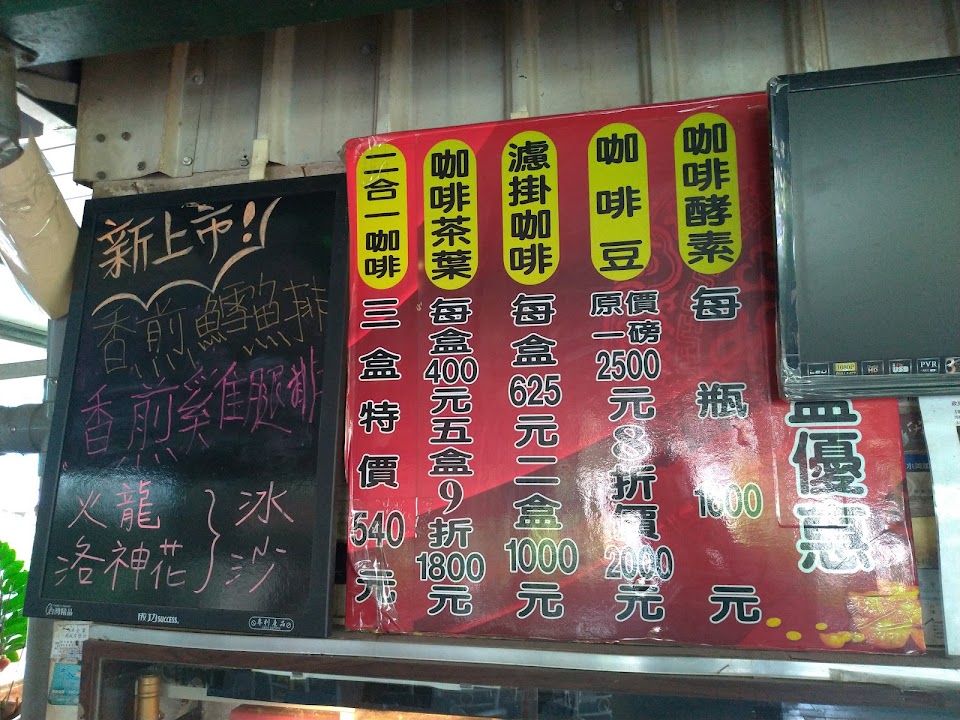 新上市!
香煎鱈魚排
香煎雞腿排
火龍
洛神花
}冰沙
成功SUCCESS
專利產品
二合一咖啡
三盒特價540元
咖啡茶葉
每盒400元五盒9折1800元
濾掛咖啡
每盒625元二盒1000元
咖啡豆
原價一磅2500元8折價2000元
咖啡酵素
每瓶1600元
優惠
1080P
HD
USB
PVR